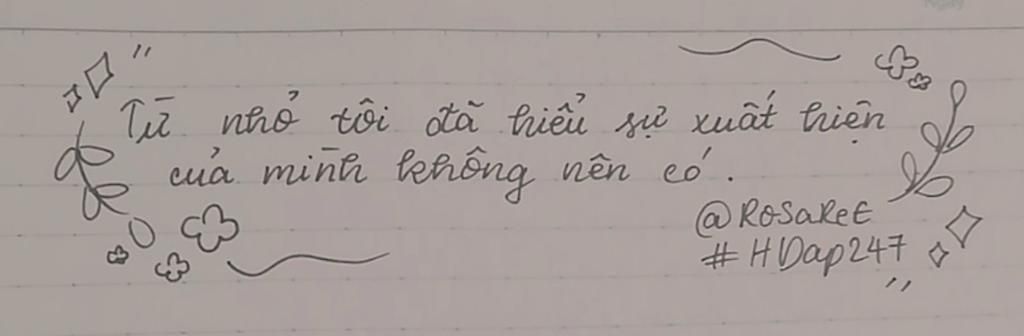 Từ nhỏ tôi đã hiểu sự xuất hiện
của mình không nên có.
@RoSaReE
#HDap247